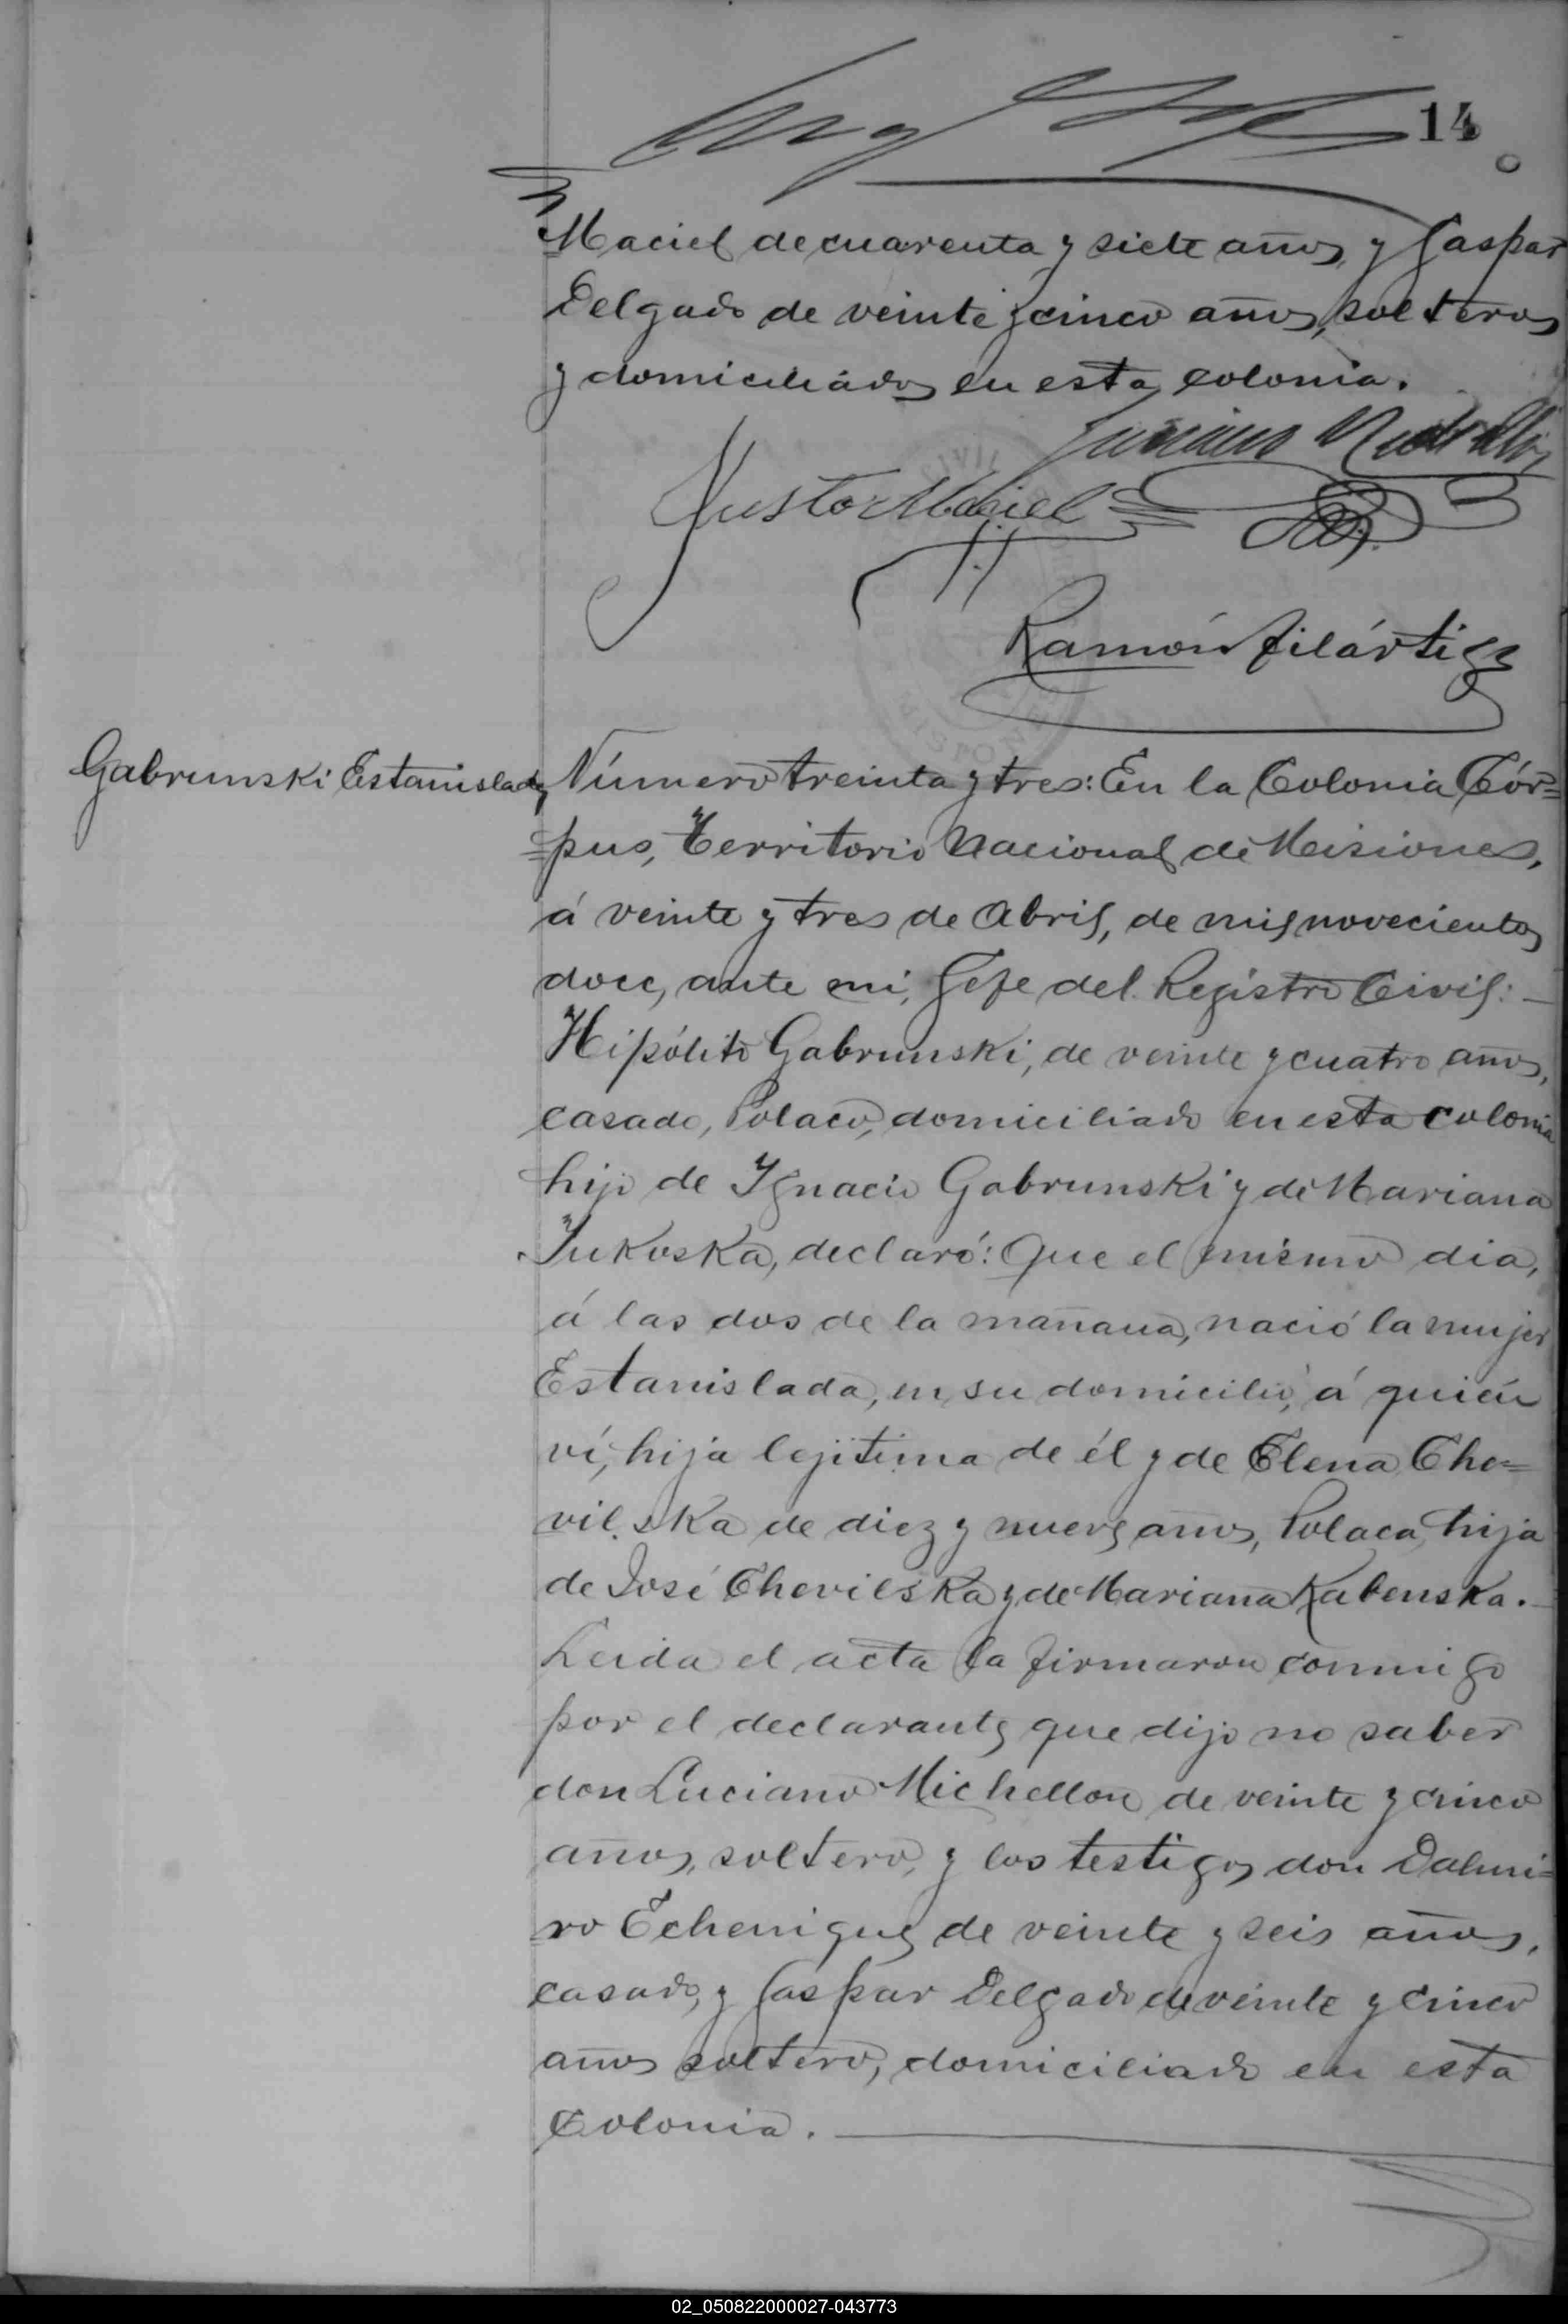 14
Maciel de cuarenta y siete años, y Gaspar
Delgado de veinte y cinco años, solteros
y domiciliados en esta colonia.
Justo Maciel
Ramón Filártiga
Gabrunski Estanislada
Número treinta y tres: En la Colonia Cór=
=pus, Territorio Nacional de Misiones,
á veinte y tres de Abril, de mil novecientos
doce, ante mi, Gefe del Registro Civil: —
Hipólito Gabrunski, de veinte y cuatro años,
casado, Polaco, domiciliado en esta colonia
hijo de Ignacio Gabrunski y de Mariana
Jukoska, declaró: Que el mismo dia,
á las dos de la mañana, nació la mujer
Estanislada, en su domicilio, á quién
ví, hija lejitima de él y de Elena Che=
vilska de diez y nueve años, Polaca, hija
de José Chevilska y de Mariana Kabenska. —
Leida el acta la firmaron conmigo
por el declarante que dijo no saber
don Luciano Michellon de veinte y cinco
años, soltero, y los testigos don Dalmi=
ro Echenique de veinte y seis años,
casado, y Gaspar Delgado de veinte y cinco
años soltero, domiciliado en esta
Colonia.
02_050822000027-043773